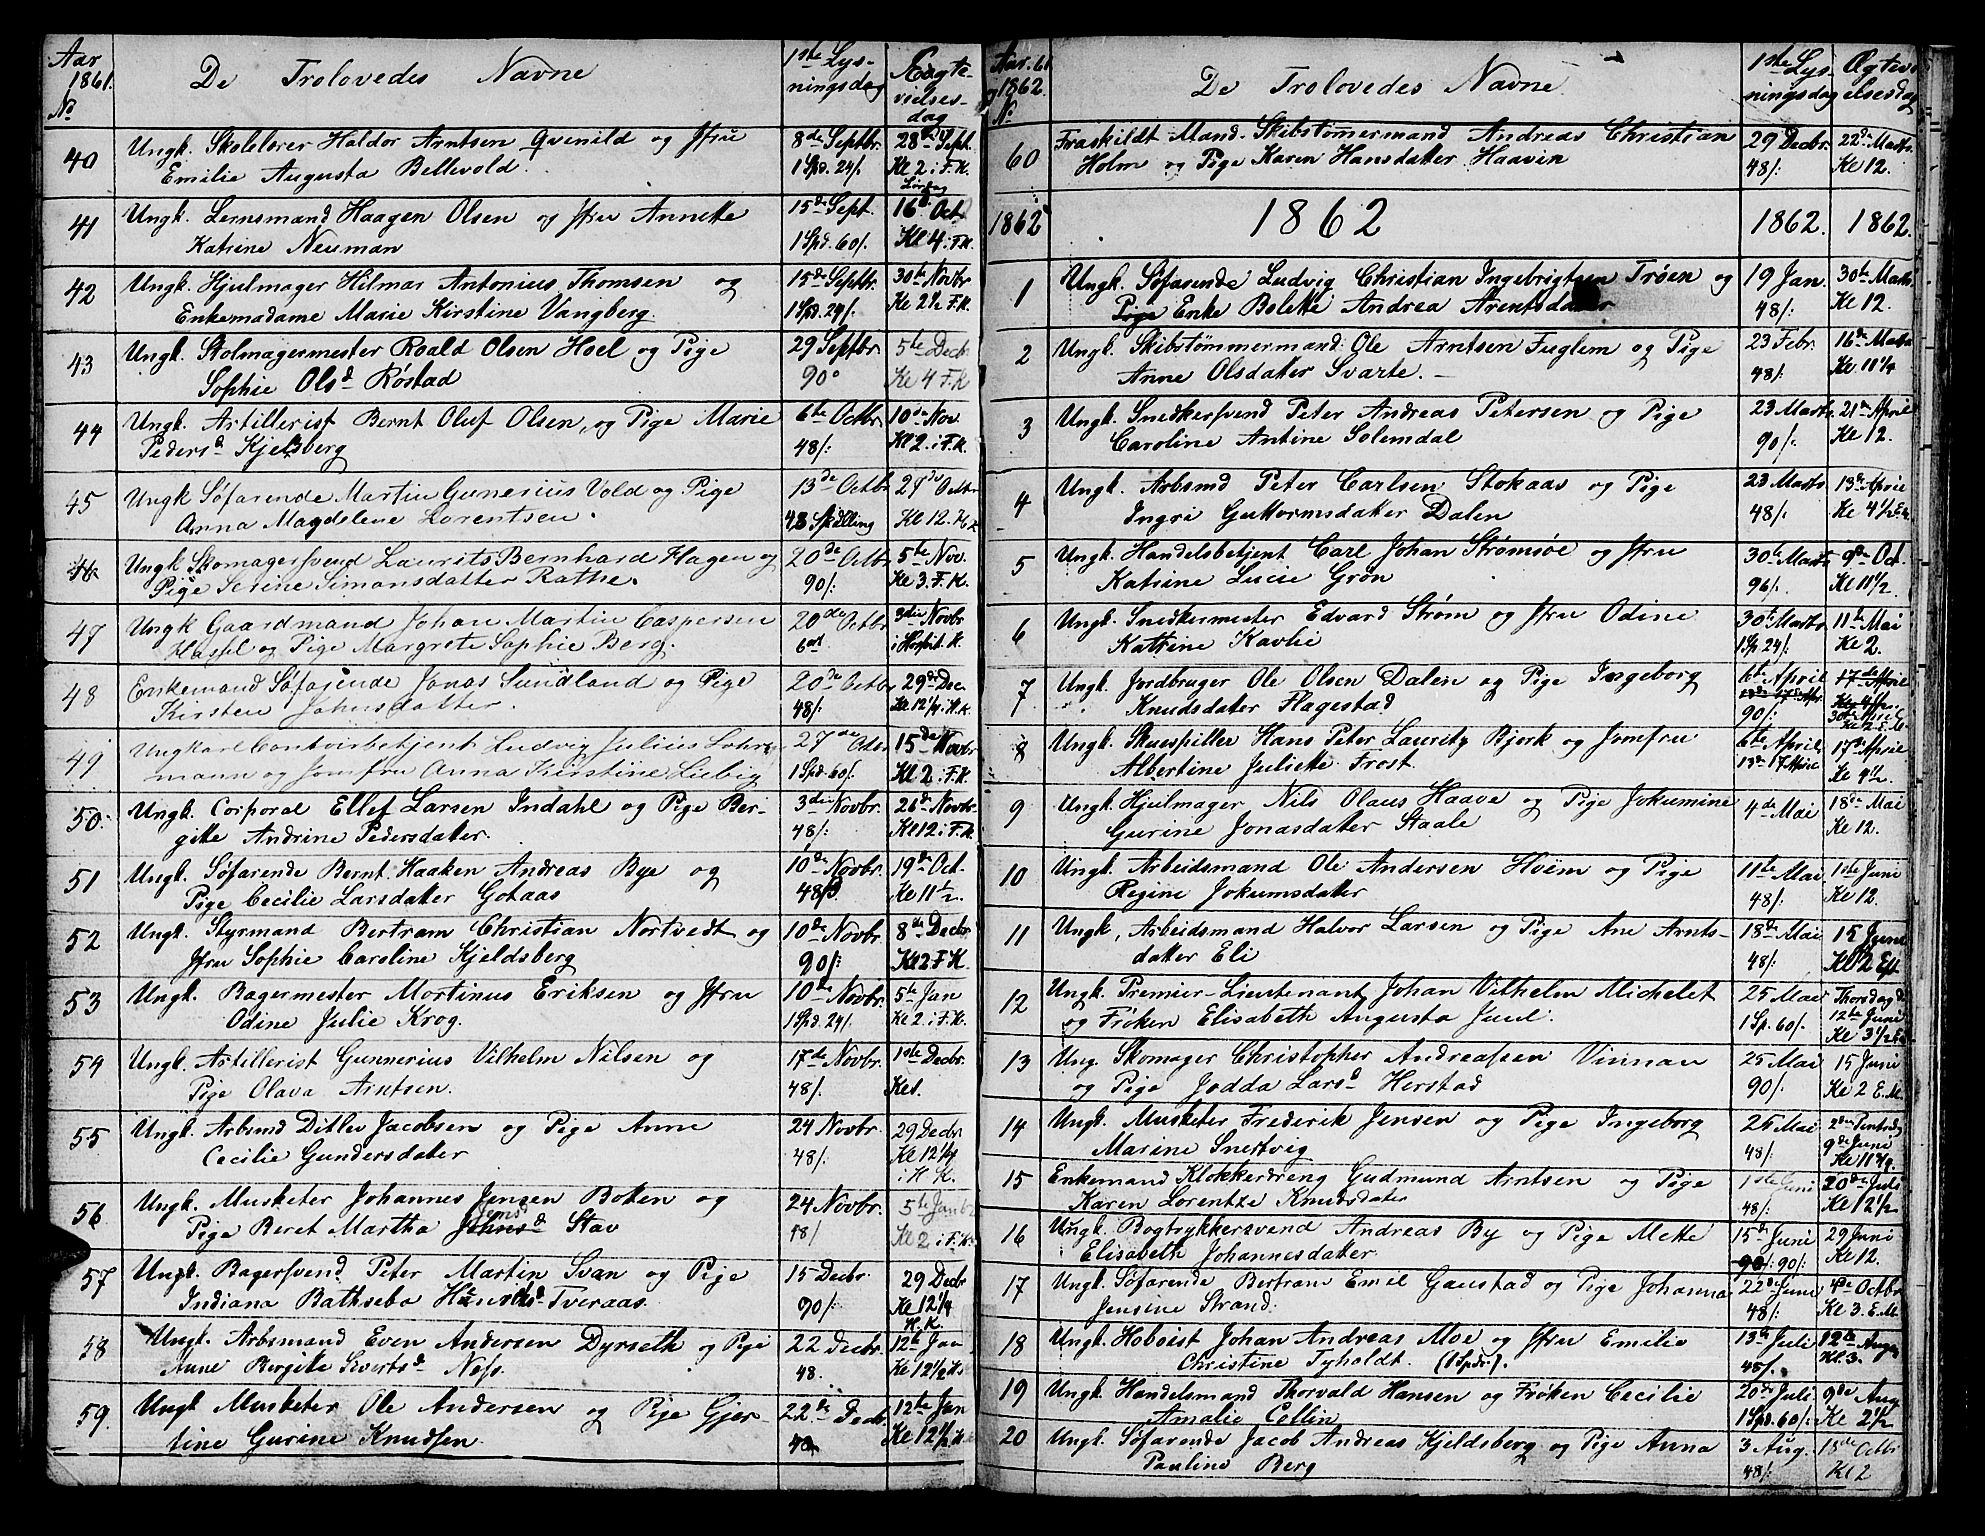 Aar 1861. De Trolovedes Navne 1ste Lysningsdag Ægtevielsesdag
No
40 Ungk. Skolelærer Haldor Arntsen Qvenild og Jfru 8de Septbr. 28de Sept.
Emilie Augusta Bellevold. 1 Spd. 24/. Kl 2 i F. K. Lørdag
41 Ungk. Lensmand Haagen Olsen og Jfru Annette 15de Sept. 16de Oct.
Katrine Neuman 1 Spd. 60/. Kl 4 i F. K.
42 Ungk. Hjulmager Hilmar Antonius Thomsen og 15de Septbr. 30te Novbr
Enkemadame Marie Kirstine Vangberg. 1 Spd. 24/. F. K.
43 Ungk. Stolmagermester Roald Olsen Hoel og Pige 29 Septbr. 5te Decbr
Sophie Olsd Røstad 90 Kl 4 F. K
44 Ungk. Artillerist Bernt Oluf Olsen, og Pige Marie 6te Octbr. 10de Nov.
Pedersd Kjelsberg 48/: Kl 2. i F. K.
45 Ungk Søfarende Martin Gunerius Vold og Pige 13de Octbr. 27de Octbr
Anna Magdelene Lorentsen. 48 Skilling Kl 12.
46 Ungk Skomagersvend Laurits Bernhard Hagen og 20de Octbr 5te Nov.
Pige Serine Simonsdatter Rathe. 90/: Kl 3. F. K.
47 Ungk Gaardmand Johan Martin Caspersen 20de Octbr 3die Novbr
Hassel og Pige Margrete Sophie Berg. i Hospit. K.
48 Enkemand Søfarende Jonas Sundland og Pige 20de Octbr 29de Dec.
Kirsten Johnsdatter. 48/: Kl 12¼ i H. K
49 Ungkarl Contoirbetjent Ludvig Julius Lohrmann 27de Octbr 15de Novbr
og Jomfru Anna Kirstine Liebig 1 Spd. 60/. Kl 2 i F. K.
50. Ungk. Corporal Ellef Larsen Indahl og Pige Ber- 3die Novbr. 26de Novbr.
gitte Andrine Pedersdatter. 48/: Kl 12 i F. K.
51 Ungk. Søfarende Bernt Haaken Andreas Bye og 10de Novbr. 19de Oct.
Pige Cecilie Larsdatter Gotaas 48 Kl 11½.
52 Ungk. Styrmand Bertram Christian Nortvedt og 10de Novbr. 8de Decbr
Jfru Sophie Caroline Kjeldsberg 90/: Kl 2 F. K.
53 Ungk. Bagermester Mortinus Eriksen og Jfru 10de Novbr. 5te Jan
Odine Julie Krog. 1 Spd. 24/. Kl 2. i F. K.
54 Ungk. Artillerist Gunnerius Vilhelm Nilsen og 17de Novbr. 1ste Decbr.
Pige Olava Arntsen. 48/: Kl 1.
55 Ungk. Arbsmd Ditlev Jacobsen og Pige Anne 24 Novbr. 29 Decbr.
Cecilie Gundersdatter 48/: Kl 12¼ i H. K.
56 Ungk. Musketer Johannes Jensen Boken og 24 Novbr. 5te Janbr
Pige Beret Martha Johnsd Jensd Stav 48/ Kl 2 i F. K.
57 Ungk. Bagersvend Peter Martin Svan og Pige 15 Decbr. 29 Decbr
Indiana Bathseba Hansd Tveraas. 90/: Kl 12¼ H. K.
58 Ungk. Arbsmand Even Andersen Dyrseth og Pige 22 Decbr. 12te Jan
Anne Birgitte Sivertsd Næss. 48. Kl 12½
59 Ungk Musketer Ole Andersen og Pige Gjer- 22de Decbr. 12te Jan
tine Gurine Knudsen. 48 Kl 12½
Aar. 61 1862. De Trolovedes Navne 1ste Lysningsdag Ægtevielsesdag
No
60 Fraskildt Mand Skibstømermand Andreas Christian 29 Decbr. 22de Marts.
Holm og Pige Karen Hansdatter Haavin 48/: Kl 12.
1862 1862 1862. 1862.
1 Ungk. Søfarende Ludvig Christian Ingebrigtsen Trøen og 19 Jan 30te Marts
Pige Enke Bolette Andrea Arentsdatter 48/: Kl 12.
2 Ungk. Skibstømmermand Ole Arntsen Fuglem og Pige 23 Febr. 16de Marts
Anne Olsdatter Svarte. 48/: Kl 11¼
3 Ungk. Snedkersvend Peter Andreas Petersen og Pige 23 Marts. 21de April
Caroline Antine Solemdal 90/: Kl 12.
4 Ungk. Arbsmd Peter Carlsen Stokaas og Pige 23 Marts 13de April
Ingri Guttormsdatter Dalen 48/: Kl 4½
5 Ungk. Handelsbetjent Carl Johan Strømsøe og Jfru 30te Marts 9de Oct.
Katrine Lucie Grøn 96/: Kl 11½.
6 Ungk. Snedkermester Edvard Strøm og Jfru Odine 30te Marts. 11te Mai
Kattrine Kavlie 1 Sp 24/: Kl 2.
7 Ungk. Jordbruger Ole Olsen Dalen og Pige Ingeborg 6te April 17de April
Knudsdatter Flagestad 90/: 30te April
8 Ungk. Skuespiller Hans Peter Lauritz Bjork og Jomfru 6te April 17de April
Albertine Juliette Frost. 13de 17 April Kl 4½.
9 Ungk. Hjulmager Nils Olaus Haave og Pige Jokumine 4de Mai 18de Mai
Gurine Jonasdatter Staale Kl 12.
10 Ungk. Arbeidsmand Ole Andersen Hoëm og Pige 11te Mai 1ste Juni
Regine Jokumsdatter 48/: Kl 12.
11 Ungk, Arbeidsmand Halvor Larsen og Pige Ane Arnts- 18de Mai 15 Juni
datter Eli 48/: Kl 2 Eft
12 Ungk. Premier-Lieutenant Johan Vilhelm Michelet 25 Mai Thorsdag d
og Frøken Elisabeth Augusta Juul. 1 Sp. 60/: 12te Juni Kl 3½
13 Ung. Skomager Christopher Andreassen Vinnan 25 Mai 15 Juni
og Pige Jodda Larsd Herstad 90/: Kl 2 E. M.
14 Ungk. Musketer Frederik Jensen og Pige Ingeborg 25 Mai 2den Pintsdag
Marine Snertvig 48/: 9de Juni Kl 11¼.
15 Enkemand Klokkerdreng Gudmund Arntsen og Pige 1ste Juni 20de Juli
Karen Lorentze Knudsdatter 48/: Kl 12½
16 Ungk. Bogtrykkersvend Andreas By og Pige Mette 15de Juni 29 Juni
Elisabeth Johannesdatter 90/: 90/: Kl 12.
17 Ungk. Søfarende Bertram Emil Gaustad og Pige Johanna 22de Juni 4de Octbr
Jensine Strand. 48/: Kl 3. E. M.
18 Ungk. Hoboist Johan Andreas Moe og Jfru Emilie 13de Juli 12te Aug
Christine Tyholdt. (1 Spdr). 48/. Kl. 3.
19 Ungk. Handelsmand Thorvald Hansen og Frøken Cecilie 20de Juli 9de Aug
Amalie Cellin 1 Spd. 60/: Kl 2½
20 Ungk. Søfarende Jacob Andreas Kjeldsberg og Pige Anna 3 Aug. 18de Octbr
Pauline Berg 48/: Kl 2